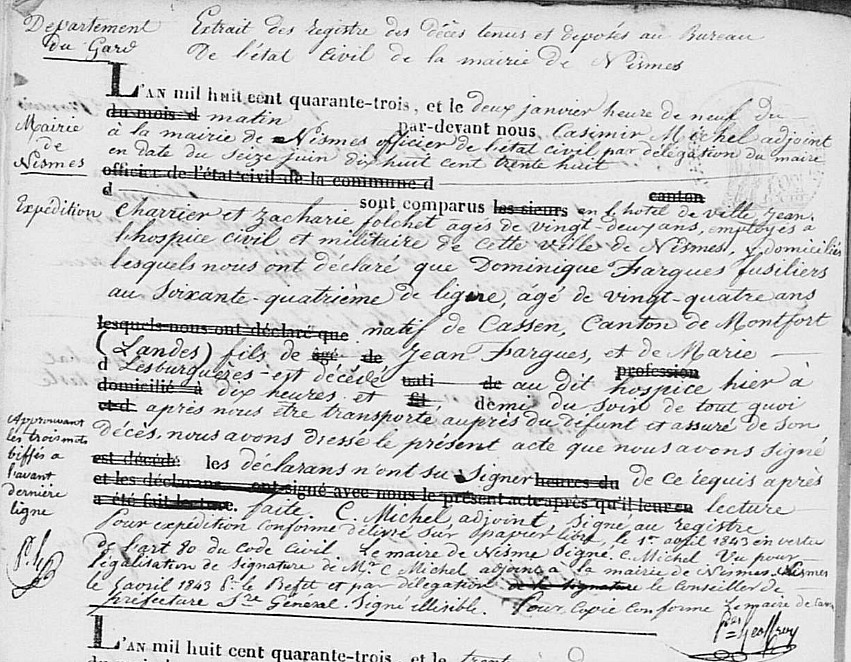 Département du Gard
Extrait des registre des décès tenus et déposés au Bureau
De l'état civil de la mairie de Nismes
L'AN mil huit cent quarante-trois, et le deux janvier heure de neuf du
du mois d matin par-devant nous Casimir Michel adjoint
Mairie de Nismes
à la mairie de Nismes officier de l'état civil par délégation du maire
en date du seize juin dix huit cent trente huit
officier de l'état civil de la commune d
canton
d sont comparus les sieurs en l'hotel de ville Jean
Expédition
Charrier et Zacharie folchet âgés de vingt-deux ans, employés a
l'hospice civil et militaire de cette ville de Nismes, y domiciliés
lesquels nous ont déclaré que Dominique Fargues fusiliers
au Soixante-quatrième de ligne, âgé de vingt-quatre ans
lesquels nous ont déclaré que natif de Cassen, Canton de Montfort
(Landes) fils de âgé de Jean Fargues, et de Marie
profession
d Lesburguères est décédé nati de au dit hospice hier à
domicilié à dix heures et fil demi du soir de tout quoi
et d après nous être transporté auprès du défunt et assuré de son
décès, nous avons dressé le présent acte que nous avons signé
Approuvant les trois mots biffés a l'avant dernière ligne
est décédé les déclarans n'ont su signer heures du de ce requis après
et les déclarans ont signé avec nous le présent acte après qu'il leur en lecture
a été fait lecture. faite. C. Michel adjoint, signé au registre
Pour expédition conforme délivré sur papier libre, le 1er avril 1843 en vertu
de l'art 80 du Code Civil Le maire de Nisme Signé. C. Michel Vu pour
légalisation de signature de Mr C Michel adjoint a la mairie de Nismes. Nismes
le 5 avril 1843 Pr. le Préfet et par délégation de la signature le Conseiller de
préfecture Sre Général. Signé illisible. Pour Copie conforme Le maire de
Geoffroy
L'AN mil huit cent quarante-trois, et le trent